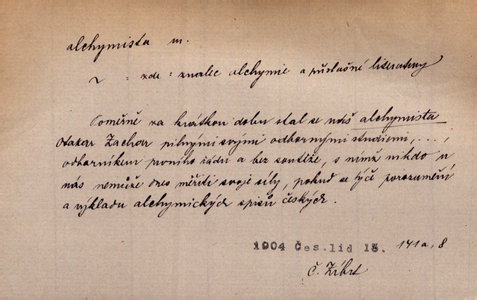 alchymista m.
= zde = znalec alchymie a příslušné literatury
Poměrně za krátkou dobu stal se náš alchymista
Otakar Zachar pilnými svými odbornými studiemi, ...,
odborníkem prvního řádu a bez soutěže, s nímž nikdo u
nás nemůže dnes měřiti svoje síly, pokud se týče porozumění
a výkladu alchymických spisů českých.
1904 Čes. lid 13. 141a, 8
Č. Zíbrt